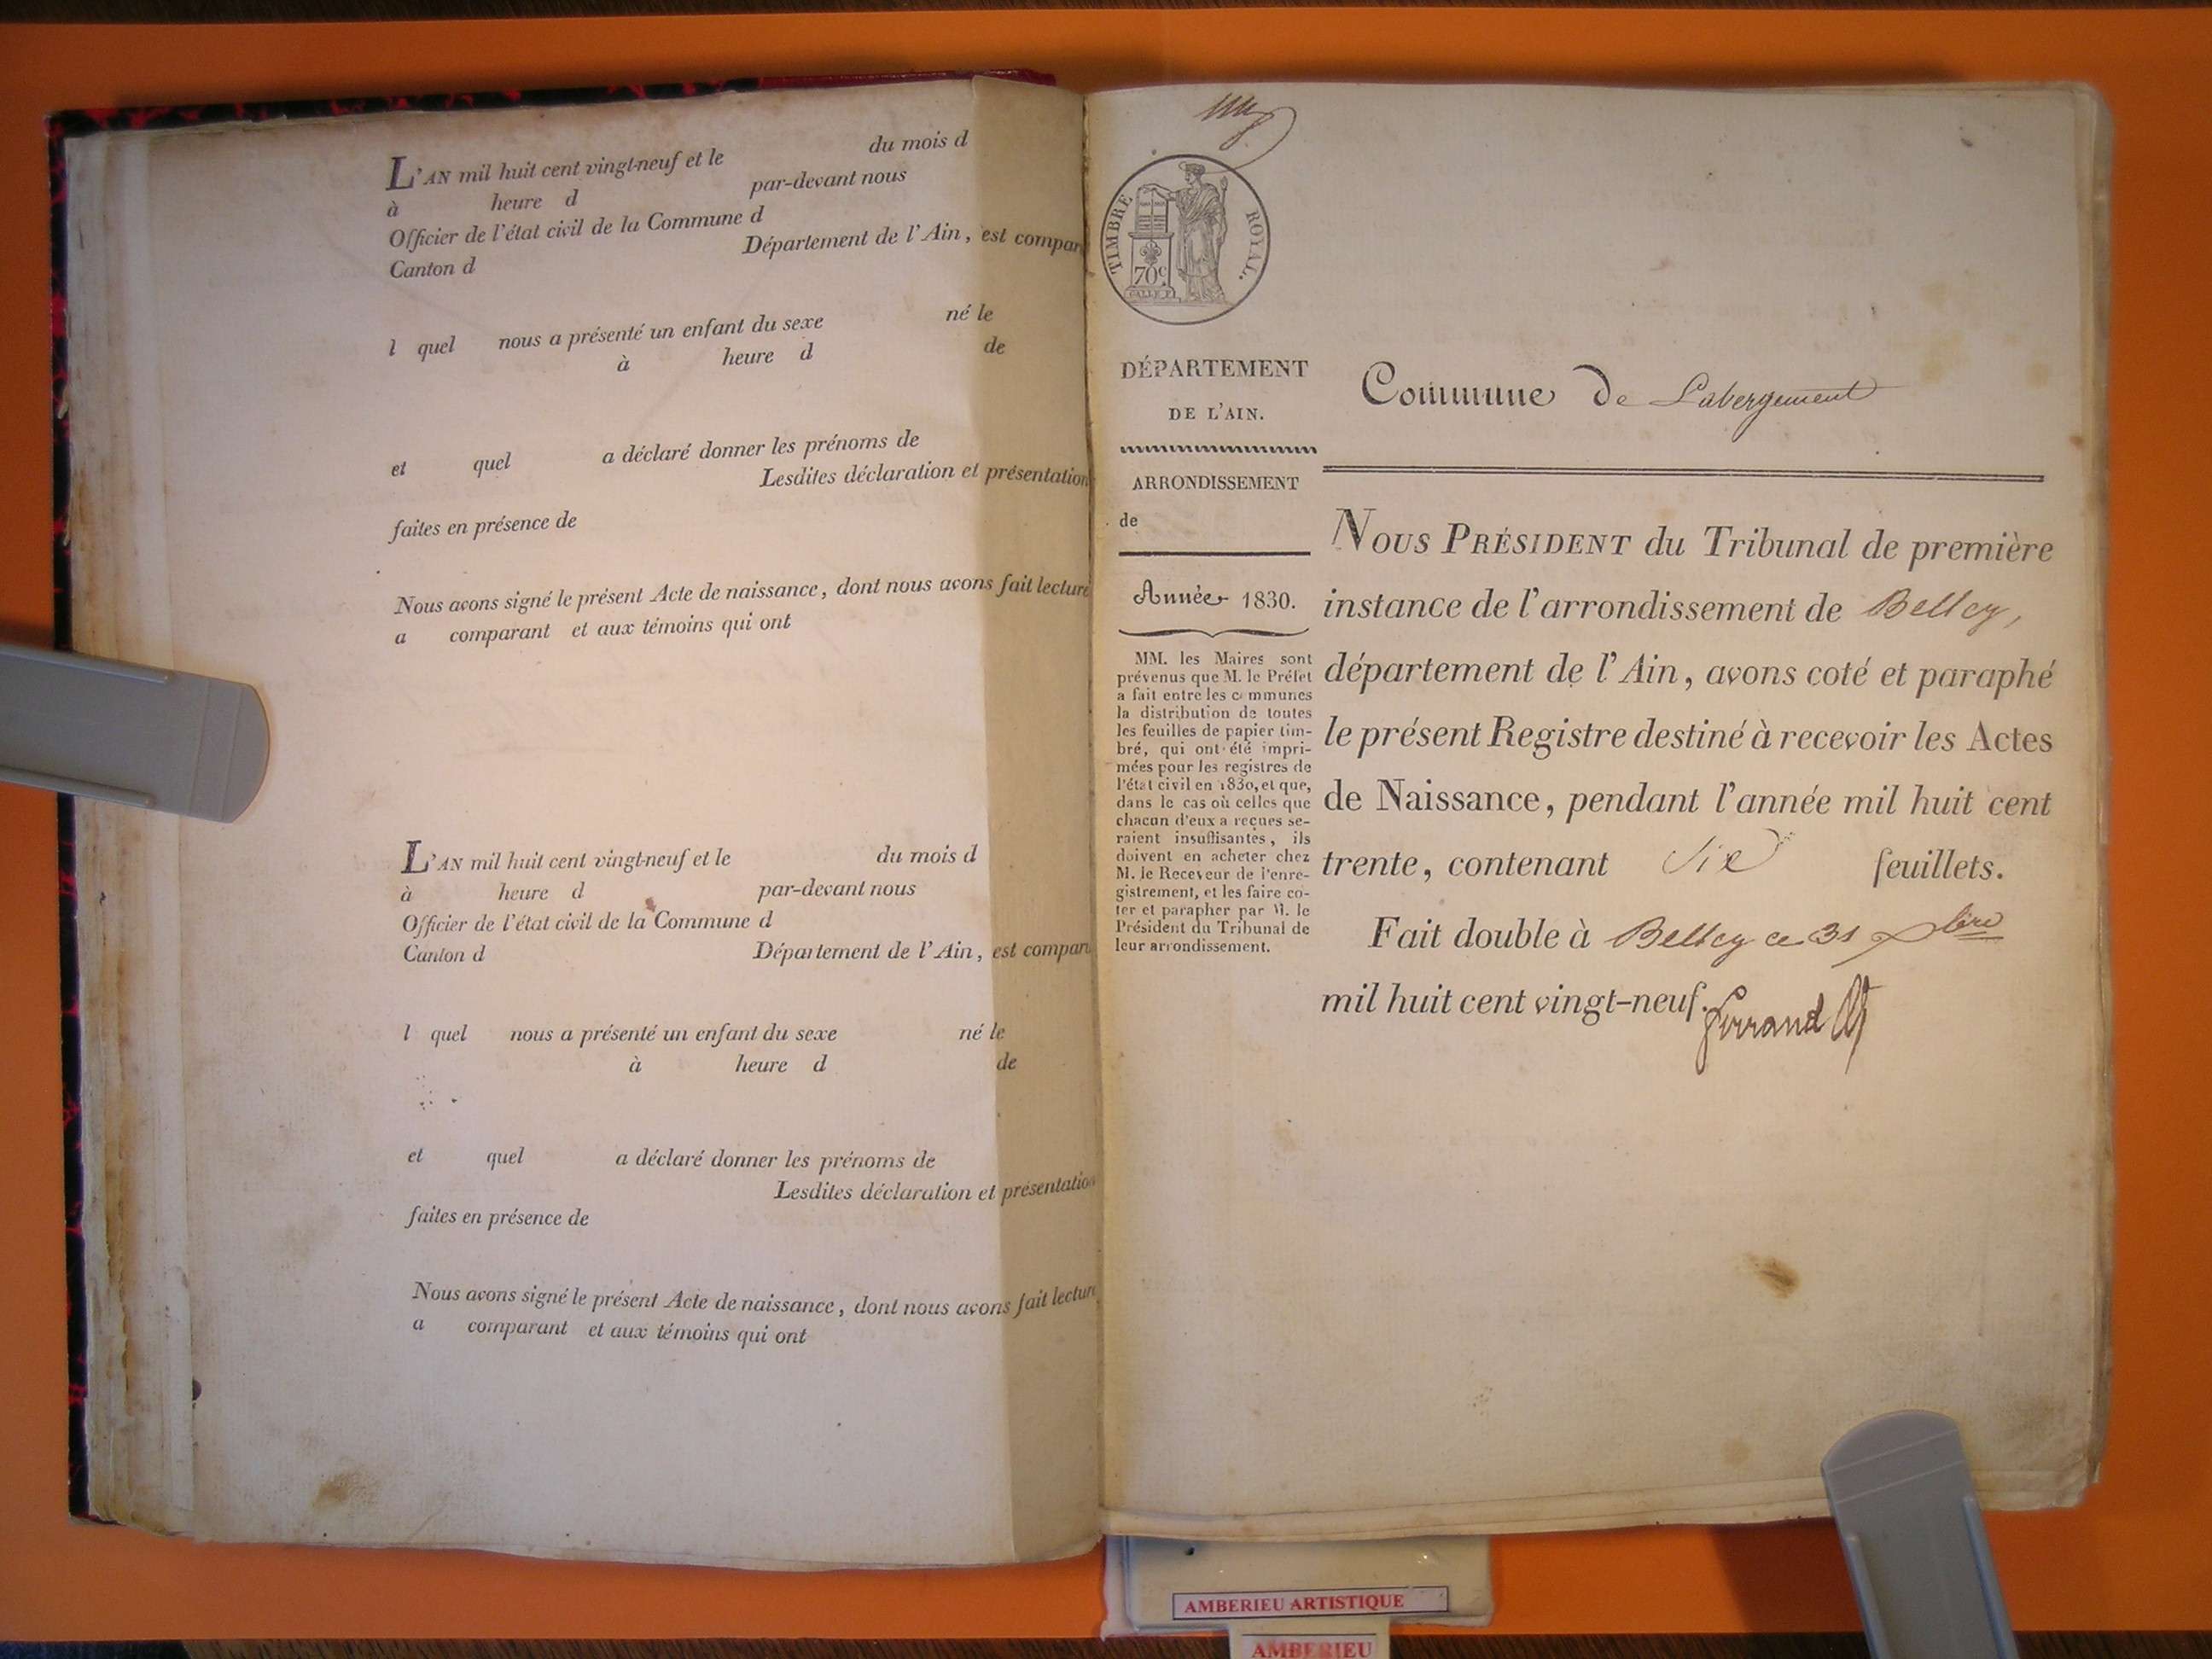 L'AN mil huit cent vingt-neuf et le du mois d
à heure d par-devant nous
Officier de l'état civil de la Commune d
Canton d Département de l'Ain, est compar
l quel nous a présenté un enfant du sexe né le
à heure d de
et quel a déclaré donner les prénoms de
Lesdites déclaration et présentation
faites en présence de
Nous avons signé le présent Acte de naissance, dont nous avons fait lecture
a comparant et aux témoins qui ont
L'AN mil huit cent vingt-neuf et le du mois d
à heure d par-devant nous
Officier de l'état civil de la Commune d
Canton d Département de l'Ain, est compar
l quel nous a présenté un enfant du sexe né le
à heure d de
et quel a déclaré donner les prénoms de
Lesdites déclaration et présentation
faites en présence de
Nous avons signé le présent Acte de naissance, dont nous avons fait lecture
a comparant et aux témoins qui ont
TIMBRE ROYAL.
70c
DÉPARTEMENT
DE L'AIN.
ARRONDISSEMENT
de
Année 1830.
MM. les Maires sont
prévenus que M. le Préfet
a fait entre les communes
la distribution de toutes
les feuilles de papier tim-
bré, qui ont été impri-
mées pour les registres de
l'état civil en 1830, et que,
dans le cas où celles que
chacun d'eux a reçues se-
raient insuffisantes, ils
doivent en acheter chez
M. le Receveur de l'enre-
gistrement, et les faire co-
ter et parapher par M. le
Président du Tribunal de
leur arrondissement.
Commune de Labergement
NOUS PRÉSIDENT du Tribunal de première
instance de l'arrondissement de Belley,
département de l'Ain, avons coté et paraphé
le présent Registre destiné à recevoir les Actes
de Naissance, pendant l'année mil huit cent
trente, contenant six feuillets.
Fait double à Belley ce 31 xbre
mil huit cent vingt-neuf.
AMBERIEU ARTISTIQUE
AMBERIEU